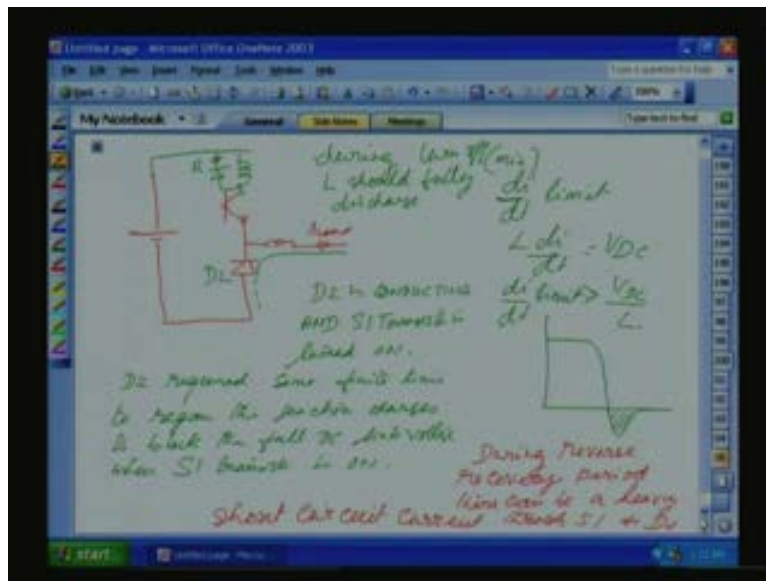 Untitled page - Microsoft Office OneNote 2003
File Edit View Insert Format Tools Window Help
Type a question for help
My Notebook
General
Side Notes
Meetings
Type text to find
R
during turn
(min)
L should fully
discharge
di/dt limit
L di/dt = VDC
di/dt limit > VDC/L
D2
D2 is conducting
AND S1 Transistor is
turned on.
D2 required some finite time
to regain the junction charges
to block the full DC link voltage
when S1 transistor is on.
During reverse
recovery period
there can be a heavy
short circuit current through S1 & D2
start
Untitled page - Micro...